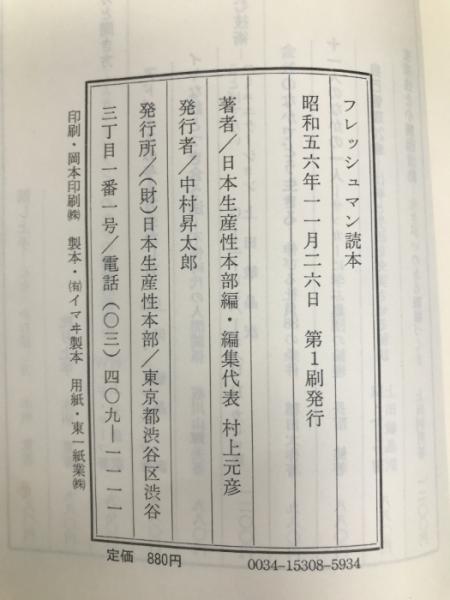 フレッシュマン読本
昭和五六年一一月二六日 第1刷発行
著者/日本生産性本部編・編集代表 村上元彦
発行者/中村昇太郎
発行所/(財)日本生産性本部/東京都渋谷区渋谷
三丁目一番一号/電話(〇三)四〇九―一一一一
印刷・岡本印刷㈱ 製本・㈲イマヰ製本 用紙・東一紙業㈱
定価 880円
0034-15308-5934